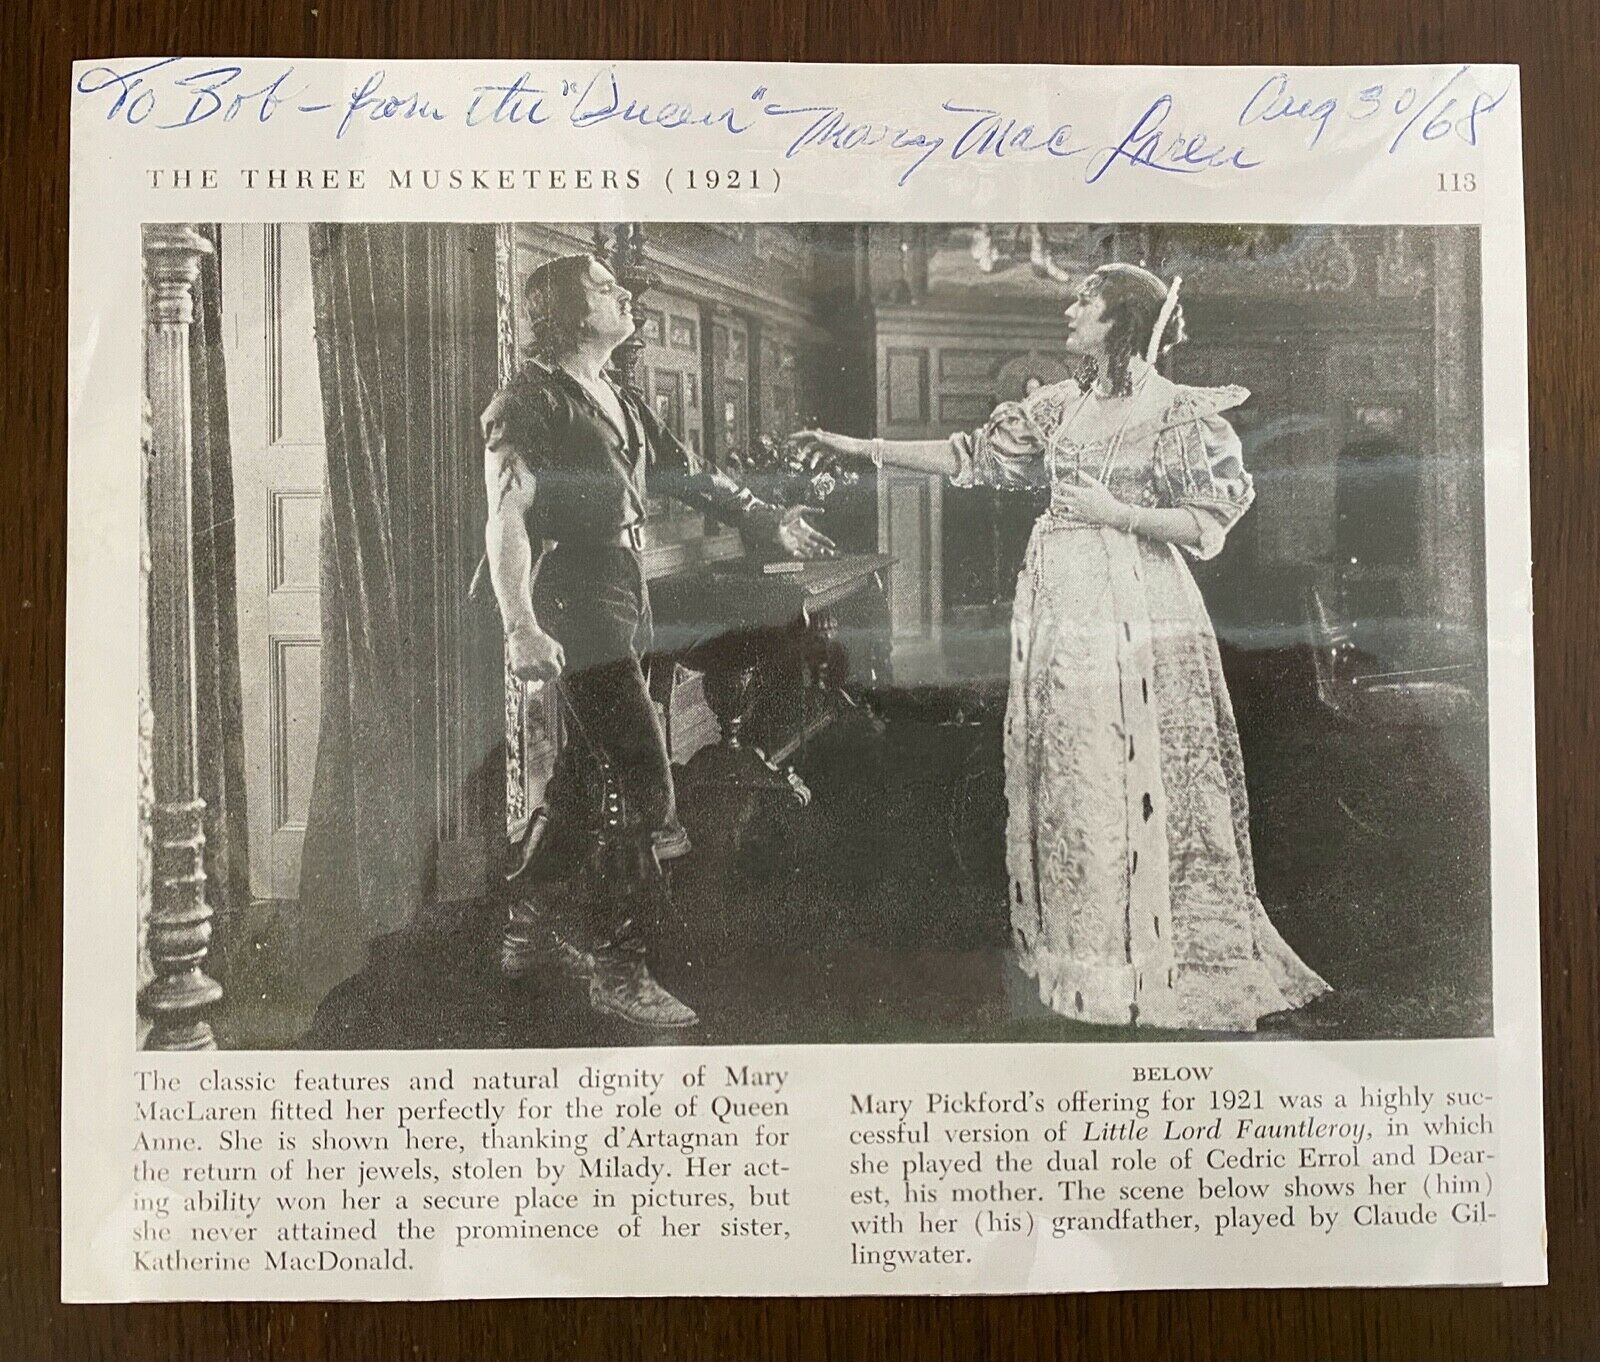 To Bob – from the "Queen" – Mary Mac Laren Aug 30/68
THE THREE MUSKETEERS (1921) 113
The classic features and natural dignity of Mary
MacLaren fitted her perfectly for the role of Queen
Anne. She is shown here, thanking d'Artagnan for
the return of her jewels, stolen by Milady. Her act-
ing ability won her a secure place in pictures, but
she never attained the prominence of her sister,
Katherine MacDonald.
BELOW
Mary Pickford's offering for 1921 was a highly suc-
cessful version of Little Lord Fauntleroy, in which
she played the dual role of Cedric Errol and Dear-
est, his mother. The scene below shows her (him)
with her (his) grandfather, played by Claude Gil-
lingwater.